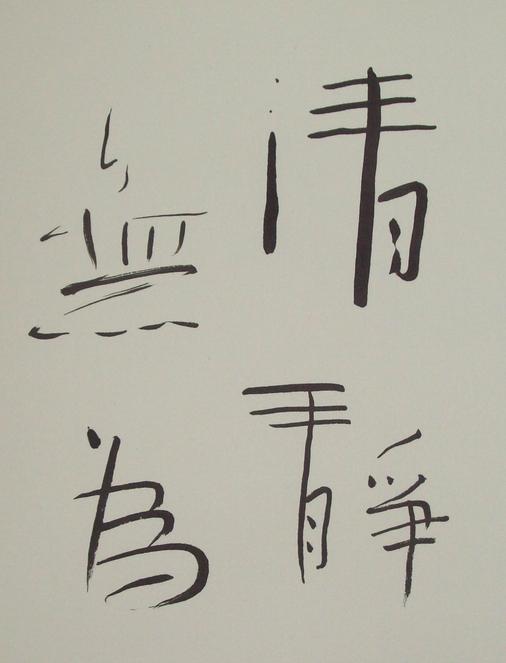 清靜
無為